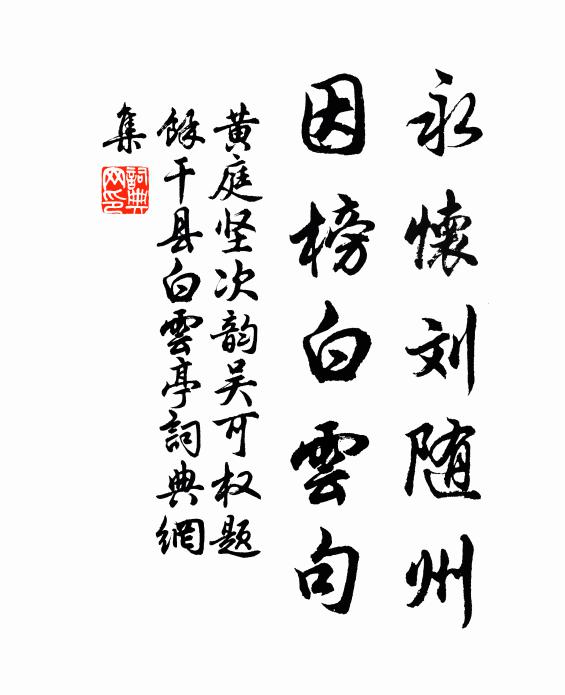 永懷刘随州
因榜白雲句
黄庭坚次韵吴可权题
餘干县白雲亭詞典網
集
詞典
网印